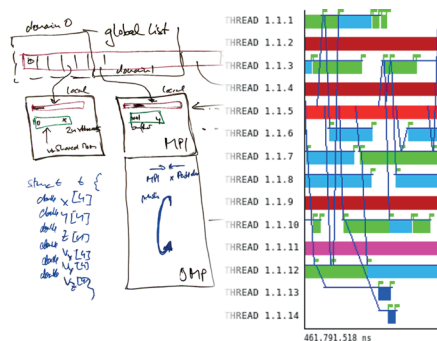 domain 0
global list
domain 1
local
local
buffer
MPI
MPI
OMP
struct t {
double x[4]
double y[4]
double z[4]
double Vx[4]
double Vy[4]
double Vz[4]
}
THREAD 1.1.1
THREAD 1.1.2
THREAD 1.1.3
THREAD 1.1.4
THREAD 1.1.5
THREAD 1.1.6
THREAD 1.1.7
THREAD 1.1.8
THREAD 1.1.9
THREAD 1.1.10
THREAD 1.1.11
THREAD 1.1.12
THREAD 1.1.13
THREAD 1.1.14
461.791.518 ns